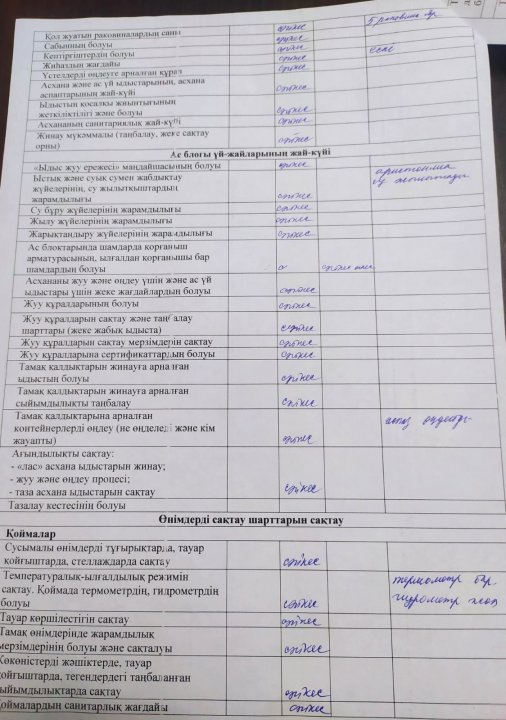 Қол жуатын раковиналардың саны сәйкес 5 раковина бар
Сабынның болуы сәйкес
Кептіргіштердің болуы сәйкес
Жиһаздың жағдайы сәйкес
Үстелдерді өңдеуге арналған құрал сәйкес
Асхана және ас үй ыдыстарының, асхана
аспаптарының жай-күйі сәйкес
Ыдыстың қосалқы жиынтығының
жеткіліктілігі және болуы сәйкес
Асхананың санитариялық жай-күйі сәйкес
Жинау мүкәммалы (таңбалау, жеке сақтау
орны) сәйкес
Ас блогы үй-жайларының жай-күйі
«Ыдыс жуу ережесі» маңдайшасының болуы сәйкес
Ыстық және суық сумен жабдықтау
жүйелерінің, су жылытқыштардың
жарамдылығы сәйкес
Су бұру жүйелерінің жарамдылығы сәйкес
Жылу жүйелерінің жарамдылығы сәйкес
Жарықтандыру жүйелерінің жарамдылығы сәйкес
Ас блоктарында шамдарда қорғаныш
арматурасының, ылғалдан қорғанышы бар
шамдардың болуы сәйкес емес
Асхананы жуу және өңдеу үшін және ас үй
ыдыстары үшін жеке жағдайлардың болуы сәйкес
Жуу құралдарының болуы сәйкес
Жуу құралдарын сақтау және таңбалау
шарттары (жеке жабық ыдыста) сәйкес
Жуу құралдарын сақтау мерзімдерін сақтау сәйкес
Жуу құралдарына сертификаттардың болуы сәйкес
Тамақ қалдықтарын жинауға арналған
ыдыстың болуы сәйкес
Тамақ қалдықтарын жинауға арналған
сыйымдылықты таңбалау сәйкес
Тамақ қалдықтарына арналған
контейнерлерді өңдеу (не өңделеді және кім
жауапты) сәйкес
Ағындылықты сақтау:
- «лас» асхана ыдыстарын жинау;
- жуу және өңдеу процесі;
- таза асхана ыдыстарын сақтау сәйкес
Тазалау кестесінің болуы
Өнімдерді сақтау шарттарын сақтау
Қоймалар
Сусымалы өнімдерді тұғырықтарда, тауар
қойғыштарда, стеллаждарда сақтау сәйкес
Температуралық-ылғалдылық режимін термометр бар.
сақтау. Қоймада термометрдің, гидрометрдің гидрометр жоқ
болуы сәйкес
Тауар көршілестігін сақтау сәйкес
Тамақ өнімдерінде жарамдылық
мерзімдерінің болуы және сақталуы сәйкес
Көкөністерді жәшіктерде, тауар
қойғыштарда, тегендердегі таңбаланған
сыйымдылықтарда сақтау сәйкес
Қоймалардың санитарлық жағдайы сәйкес